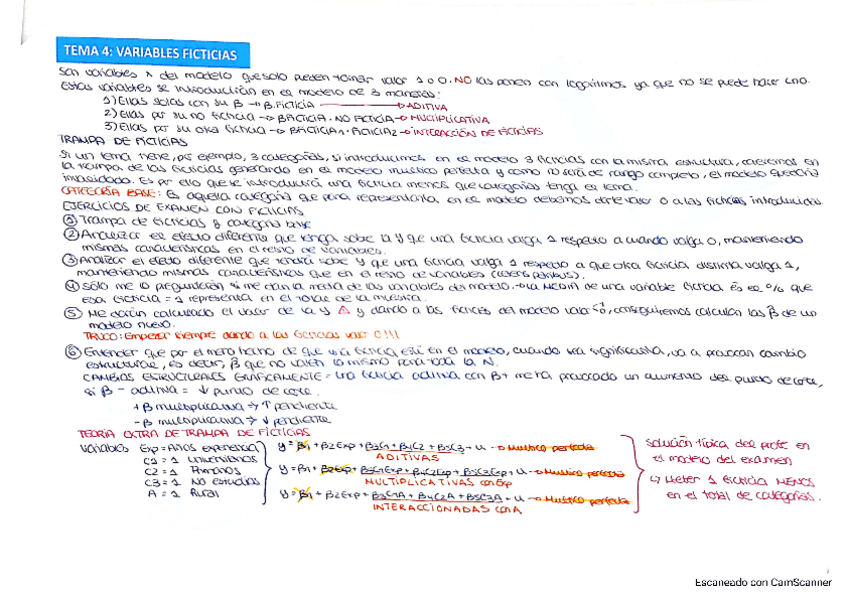 TEMA 4: VARIABLES FICTICIAS
Son variables x del modelo que solo pueden tomar valor 1 o 0. NO las ponen con logaritmos ya que no se puede hacer Ln0.
Estas variables se introducirán en el modelo de 3 maneras:
1) Ellas solas con su β → β.FICTICIA → ADITIVA
2) Ellas por su no ficticia → βFICTICIA. NO FICTICIA → MULTIPLICATIVA
3) Ellas por su otra ficticia → βFICTICIA1. FICTICIA2 → INTERACCIÓN DE FICTICIAS
TRAMPA DE FICTICIAS
Si un tema tiene, por ejemplo, 3 categorías, si introducimos en el modelo 3 ficticias con la misma estructura, caeremos en
la trampa de las ficticias generando en el modelo multico perfecta y como no será de rango completo, el modelo quedaría
invalidado. Es por ello que se introducirá una ficticia menos que categorías tenga el tema.
CATEGORÍA BASE: Es aquella categoría que para representarla en el modelo debemos darle valor 0 a las ficticias introducidas.
EJERCICIOS DE EXAMEN CON FICTICIAS
① Trampa de ficticias y categoría base
② Analizar el efecto diferente que tenga sobre la y que una ficticia valga 1 respecto a cuando valga 0, manteniendo
mismas características en el resto de variables.
③ Analizar el efecto diferente que tendrá sobre y que una ficticia valga 1 respecto a que otra ficticia distinta valga 1,
manteniendo mismas características que en el resto de variables (ceteris paribus).
④ Sólo me lo preguntarán si me dan la media de las variables del modelo. → La MEDIA de una variable ficticia es el % que
esa ficticia = 1 representa en el total de la muestra.
⑤ Me darán calculado el valor de la y Δ y dando a las ficticias del modelo valor, conseguiremos calcular las β de un
modelo nuevo.
TRUCO: Empezar siempre dando a las ficticias valor 0!!!
⑥ Entender que por el mero hecho de que una ficticia esté en el modelo, cuando sea significativa, va a provocar cambio
estructural, es decir, β que no valen lo mismo para toda la N.
CAMBIOS ESTRUCTURALES GRÁFICAMENTE = Una ficticia aditiva con β+ me ha provocado un aumento del punto de corte,
si β - aditiva = ↓ punto de corte.
+ β multiplicativa → ↑ pendiente
- β multiplicativa → ↓ pendiente
TEORÍA EXTRA DE TRAMPA DE FICTICIAS
Variables Exp = Años experiencia
C1 = 1 Universitarios
C2 = 1 Primarios
C3 = 1 No estudios
A = 1 Rural
y = β1 + β2Exp + β3C1 + β4C2 + β5C3 + u → Multico perfecta
ADITIVAS
y = β1 + β2Exp + β3C1Exp + β4C2Exp + β5C3Exp + u → Multico perfecta
MULTIPLICATIVAS con Exp
y = β1 + β2Exp + β3C1A + β4C2A + β5C3A + u → Multico perfecta
INTERACCIONADAS con A
Solución típica del profe en
el modelo del examen
↳ Meter 1 ficticia MENOS
en el total de categorías.
Escaneado con CamScanner